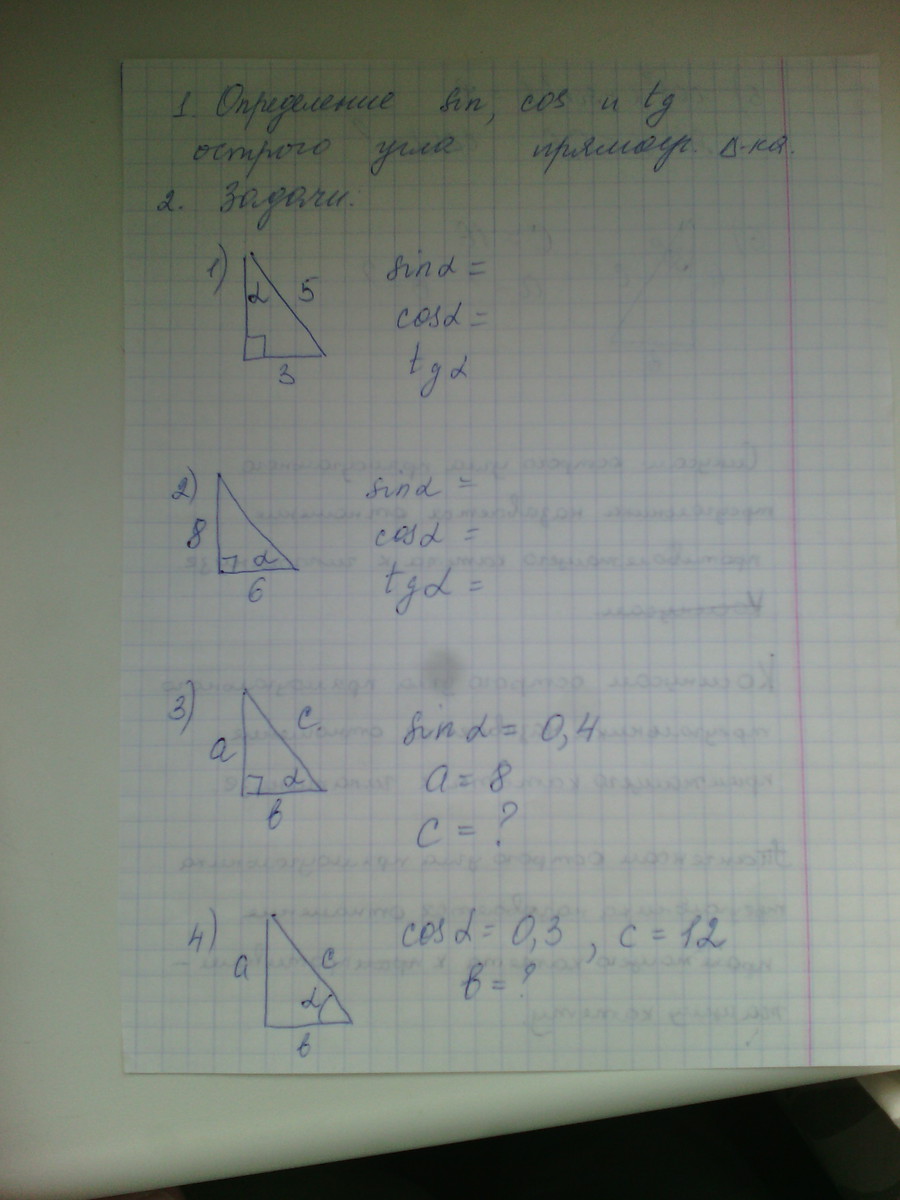 1. Определение sin, cos и tg
острого угла прямоуг. Δ-ка.
2. Задачи:
1) α 5 sinα =
cosα =
3 tgα
2) sinα =
8 cosα =
α tgα =
6
3) c sinα = 0,4
a α a = 8
в c = ?
4) a c cosα = 0,3 , c = 12
α в = ?
в